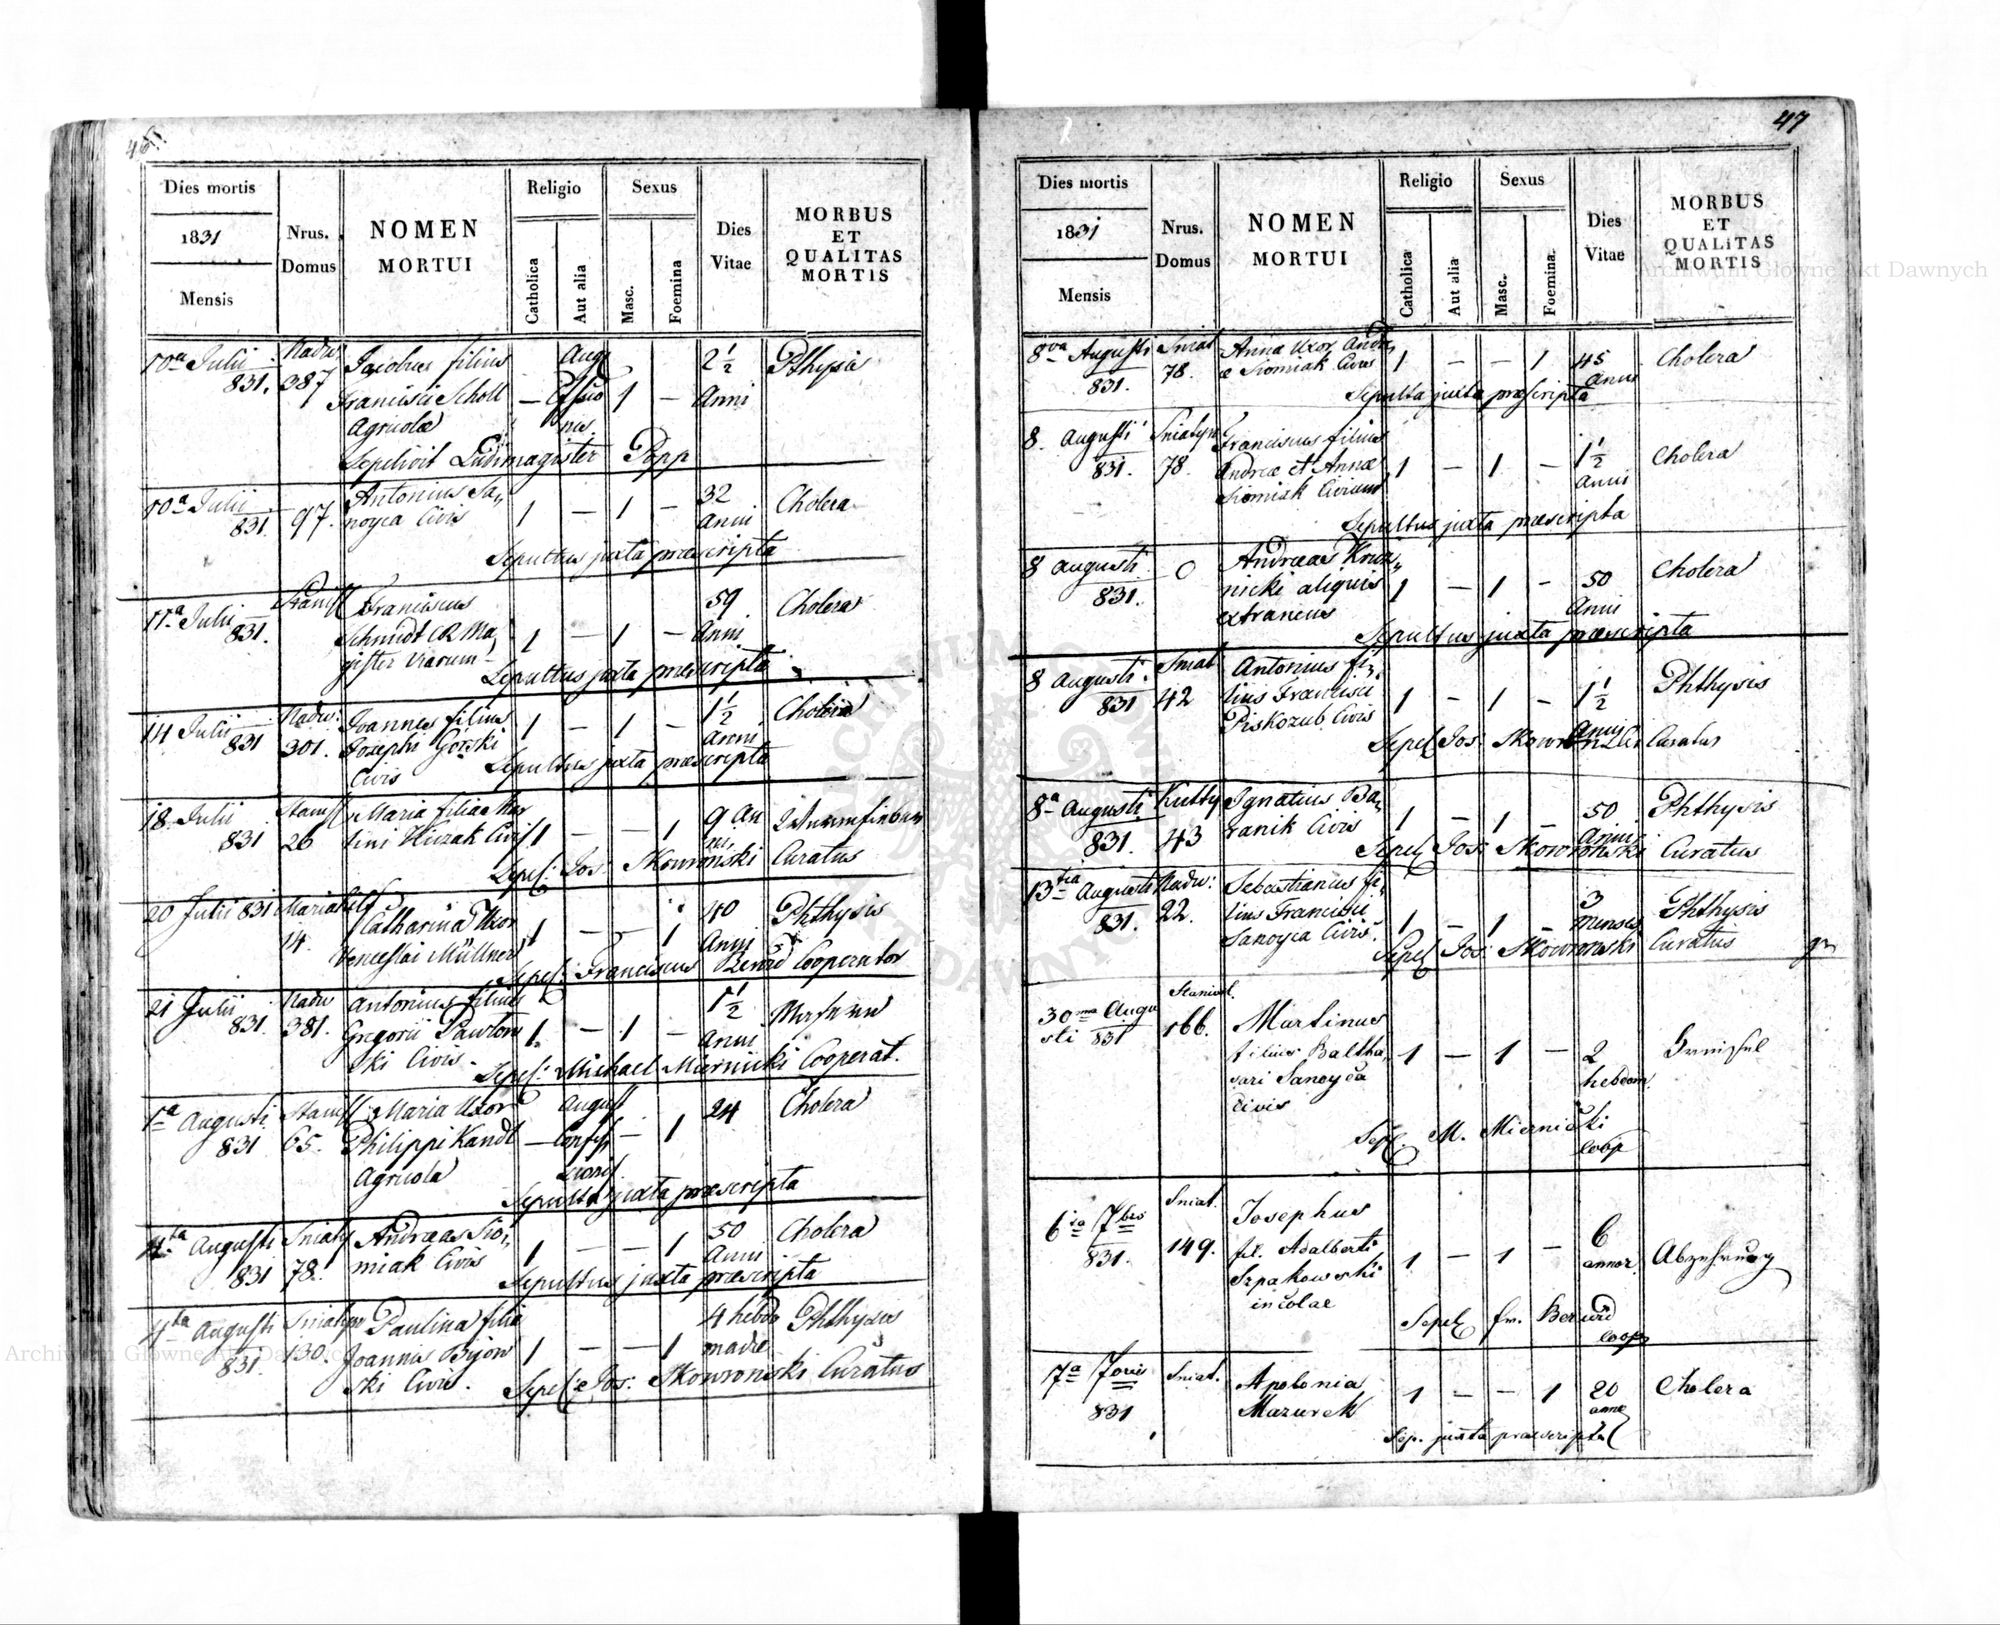 46.
Dies mortis
1831
Mensis
Nrus.
Domus
NOMEN
MORTUI
Religio
Catholica
Aut alia
Sexus
Masc.
Foemina
Dies
Vitae
MORBUS
ET
QUALITAS
MORTIS
10a Julii Radu: Jacobus filius Aug. 2 1/2 Phthysis
831. 387 Francisci Scholl — Confessio 1 — Anni
Agricolæ nis.
Sepelivit Ludimagister Popp
10a Julii Antonius Sa, 32 Cholera
831. 97. noyca Civis 1 — 1 — Anni
Sepultus juxta præscripta
11a Julii Franciscus 59 Cholera
831. Schmidt CR Ma, 1 — 1 — Anni
gister viarum
Sepultus juxta præscripta
14 Julii Radu: Joannes filius 1 — 1 — 1 1/2 Cholera
831 301. Josephi Górski Anni
Civis Sepultus juxta præscripta
18 Julii Maria filia Mar 9 An
831 26 tini Huzak Civis 1 — — 1 ni.
Sepel: Jos: Skowroński Curatus
20 Julii 831 Mariahelf Catharina Uxor 1 — — 1 40 Phthysis
14. Venceslai Müllner Anni
Sepel: Franciscus Cooperator
21 Julii Radu Antonius filius 1 1/2
831. 381. Gregorii Pawłow 1. — 1 — Anni
ski Civis
Sepel: Michael Miernicki Cooperat.
1a Augusti Maria Uxor August 24 Cholera
831 65. Philippi Kandl — Confess — 1
Agricola
Sepulta juxta præscripta
4ta Augusti Sniaty Andreas Sio, 50 Cholera
831 78. miak Civis 1 — — 1 Anni
Sepultus juxta præscripta
4ta Augusti Sniatyn Paulina filia 4 hebdo Phthysis
831. 130. Joannis Bijow 1 — — 1 madæ
ski Civis.
Sepel: Jos: Skowroński Curatus
47
Dies mortis
1831
Mensis
Nrus.
Domus
NOMEN
MORTUI
Religio
Catholica
Aut alia
Sexus
Masc.
Foemina.
Dies
Vitae
MORBUS
ET
QUALITAS
MORTIS
8va Augusti Sniat Anna Uxor Andre, 1 — — 1 45 Cholera
831. 78. æ Siomiak Civis Annis
Sepulta juxta præscripta
8. Augusti Sniatyn Franciscus filius 1 1/2 Cholera
831. 78. Andreæ et Annæ 1 — 1 — Anni
Siomiak Civium
Sepultus juxta præscripta
8 Augusti 0 Andreas Kruz, 50 Cholera
831. nicki aliquis 1 — 1 — Anni
extraneus
Sepultus juxta præscripta
8 Augusti Sniat Antonius fi, 1 1/2 Phthysis
831 42 lius Francisci 1 — 1 —
Piskozub Civis Annis
Sepel Jos: Skowroński Curatus
8a Augusti Kutty Ignatius Ba, 50 Phthysis
831. 43 ranik Civis 1 — 1 — Anni
Sepel Jos: Skowroński Curatus
13tia Augusti Radu: Sebastianus fi, 3 Phthysis
831. 22. lius Francisci 1 — 1 — Menses
Sanoyca Civis.
Sepel Jos: Skowroński Curatus
30ma Augu Stanisl.
sti 831 166. Martinus
filius Baltha, 1 — 1 — 2
sari Sanoyca hebdom.
Civis
Sepel. M. Miernicki
Coop
6ta 7bris Sniat. Josephus
831. 149. fil. Adalberti 1 — 1 — 6 Abzehrung
Szpakowski annor.
incolae
Sepel fr.
Coop
7a 7bris Sniat. Apolonia 1 — — 1 20 Cholera
831 Mazurek
Sep. juxta praescripta
Archiwum Główne Akt Dawnych
Archiwum Główne Akt Dawnych
ARCHIWUM GŁÓWNE AKT DAWNYCH